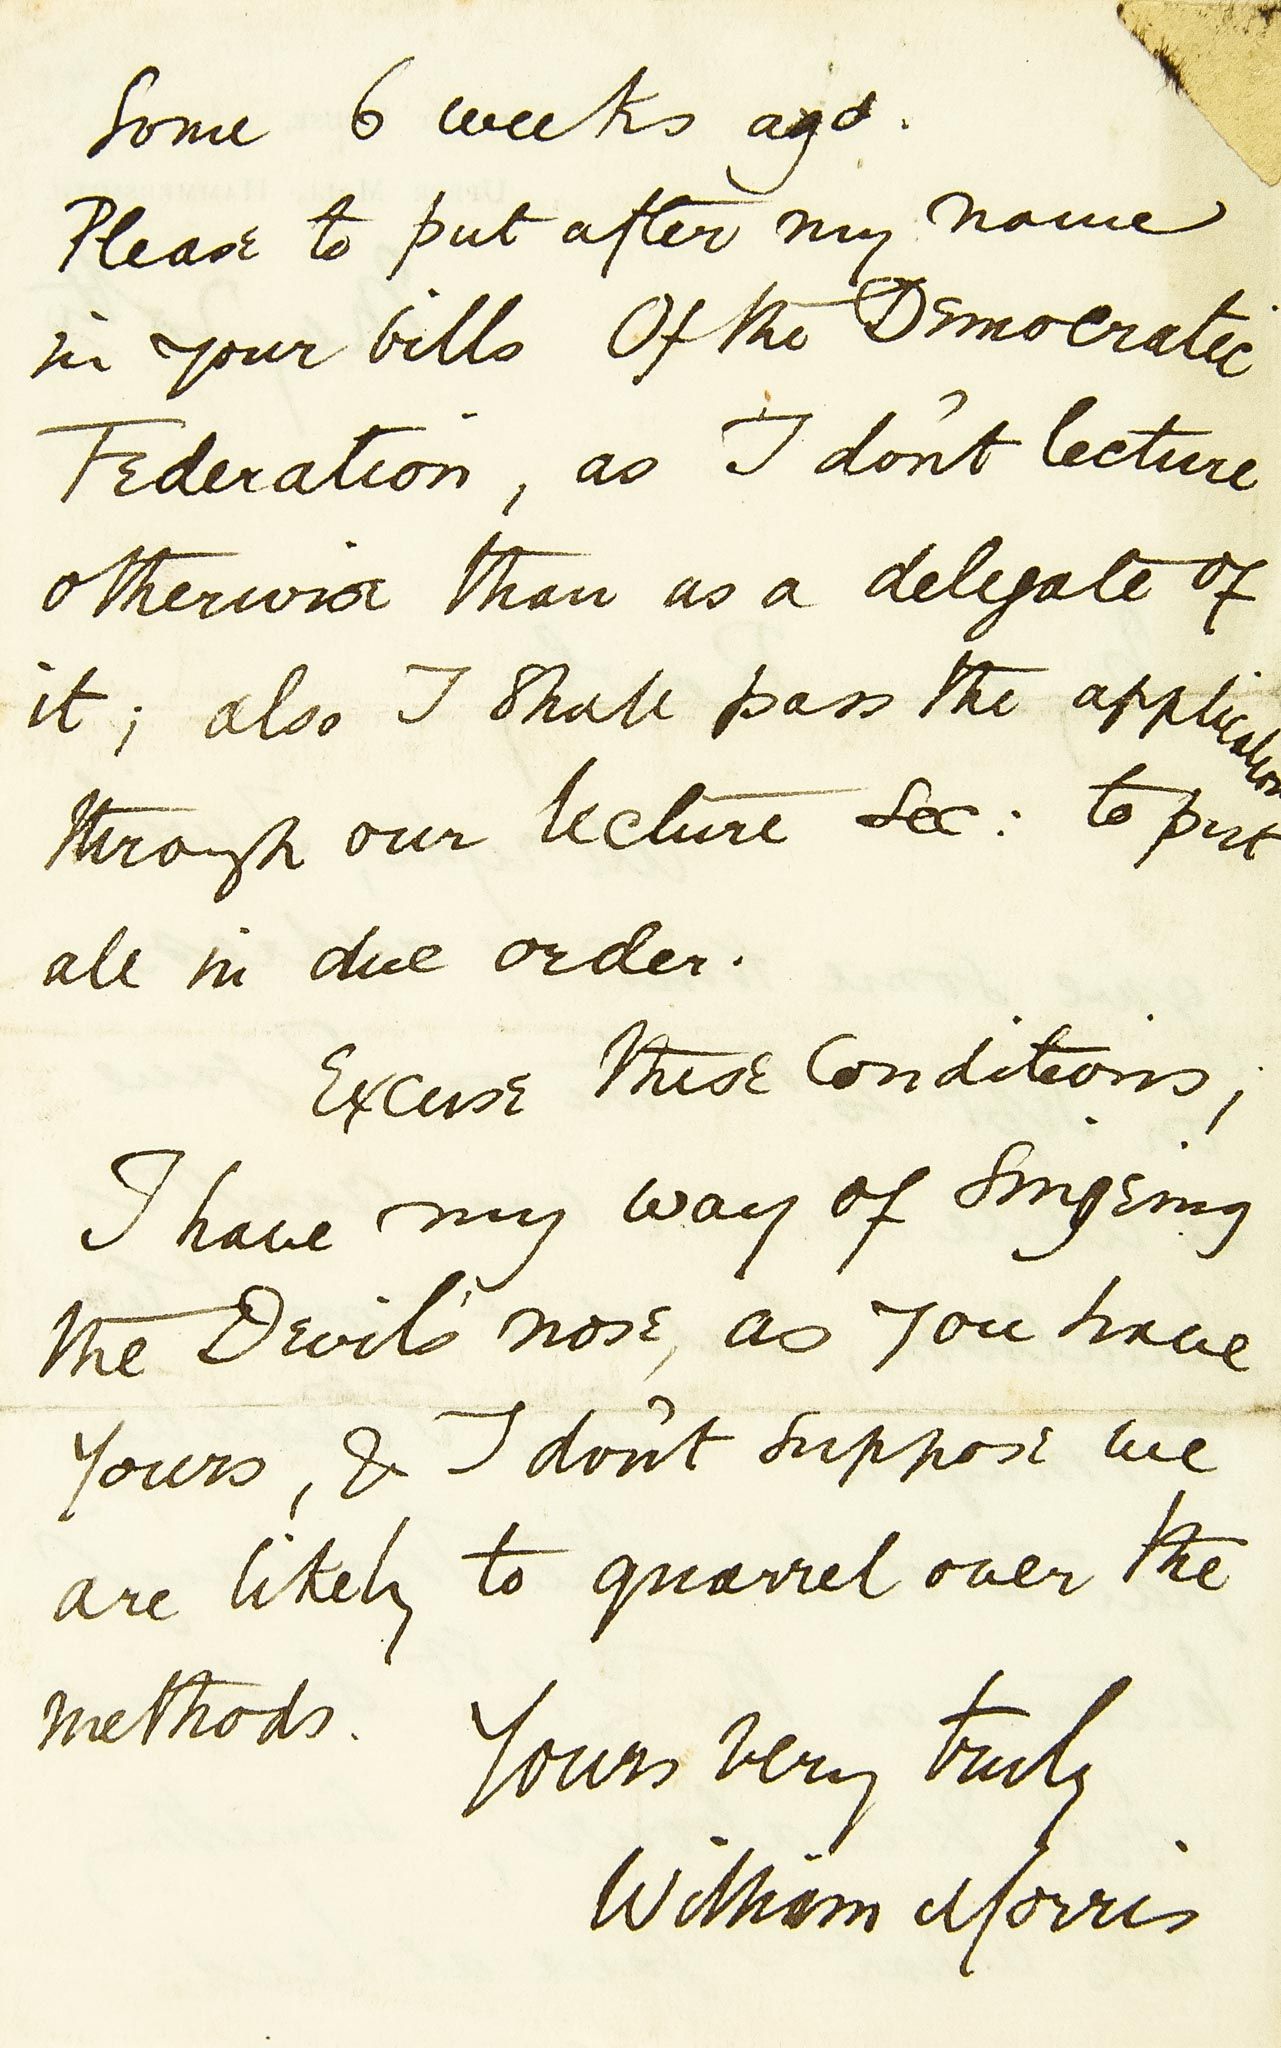 Some 6 weeks ago.
Please to put after my name
in your bills Of the Democratic
Federation, as I don't lecture
otherwise than as a delegate of
it; also I shall pass the application
through our lecture Sec: to put
all in due order.
Excuse these Conditions;
I have my way of Singeing
the Devil's nose, as you have
yours, & I don't suppose we
are likely to quarrel over the
methods.
Yours very truly
William Morris